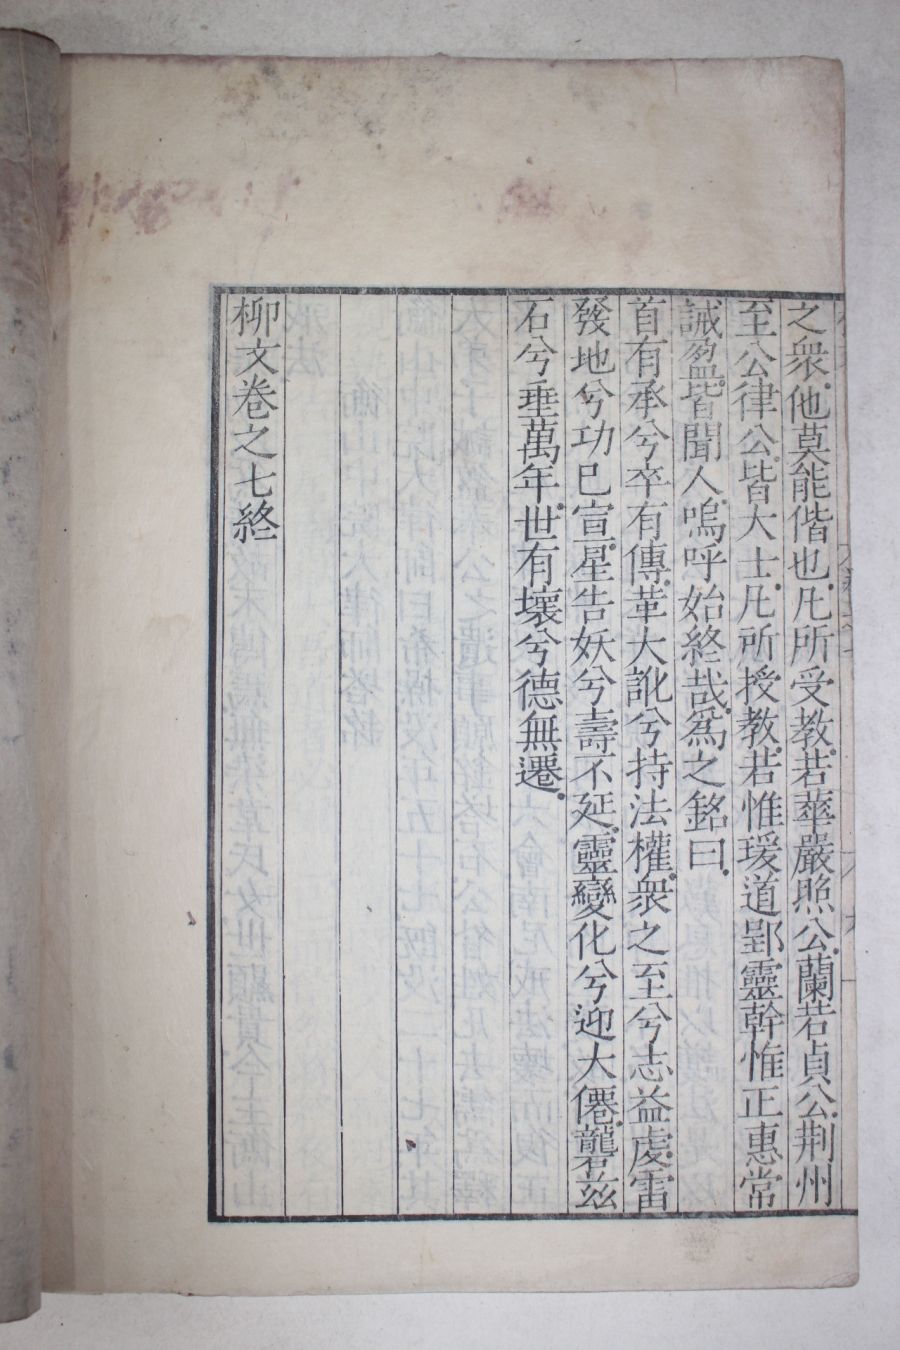 之衆他莫能偕也凡所受教若華嚴照公蘭若貞公荆州
至公律公皆大士凡所授教若惟瑗道郢靈幹惟正惠常
誡盈皆聞人嗚呼始終哉爲之銘曰
首有承兮卒有傳革大訛兮持法權衆之至兮志益虔雷
發地兮功已宣星告妖兮壽不延靈變化兮迎大僊礱茲
石兮垂萬年世有壞兮德無遷
柳文卷之七終